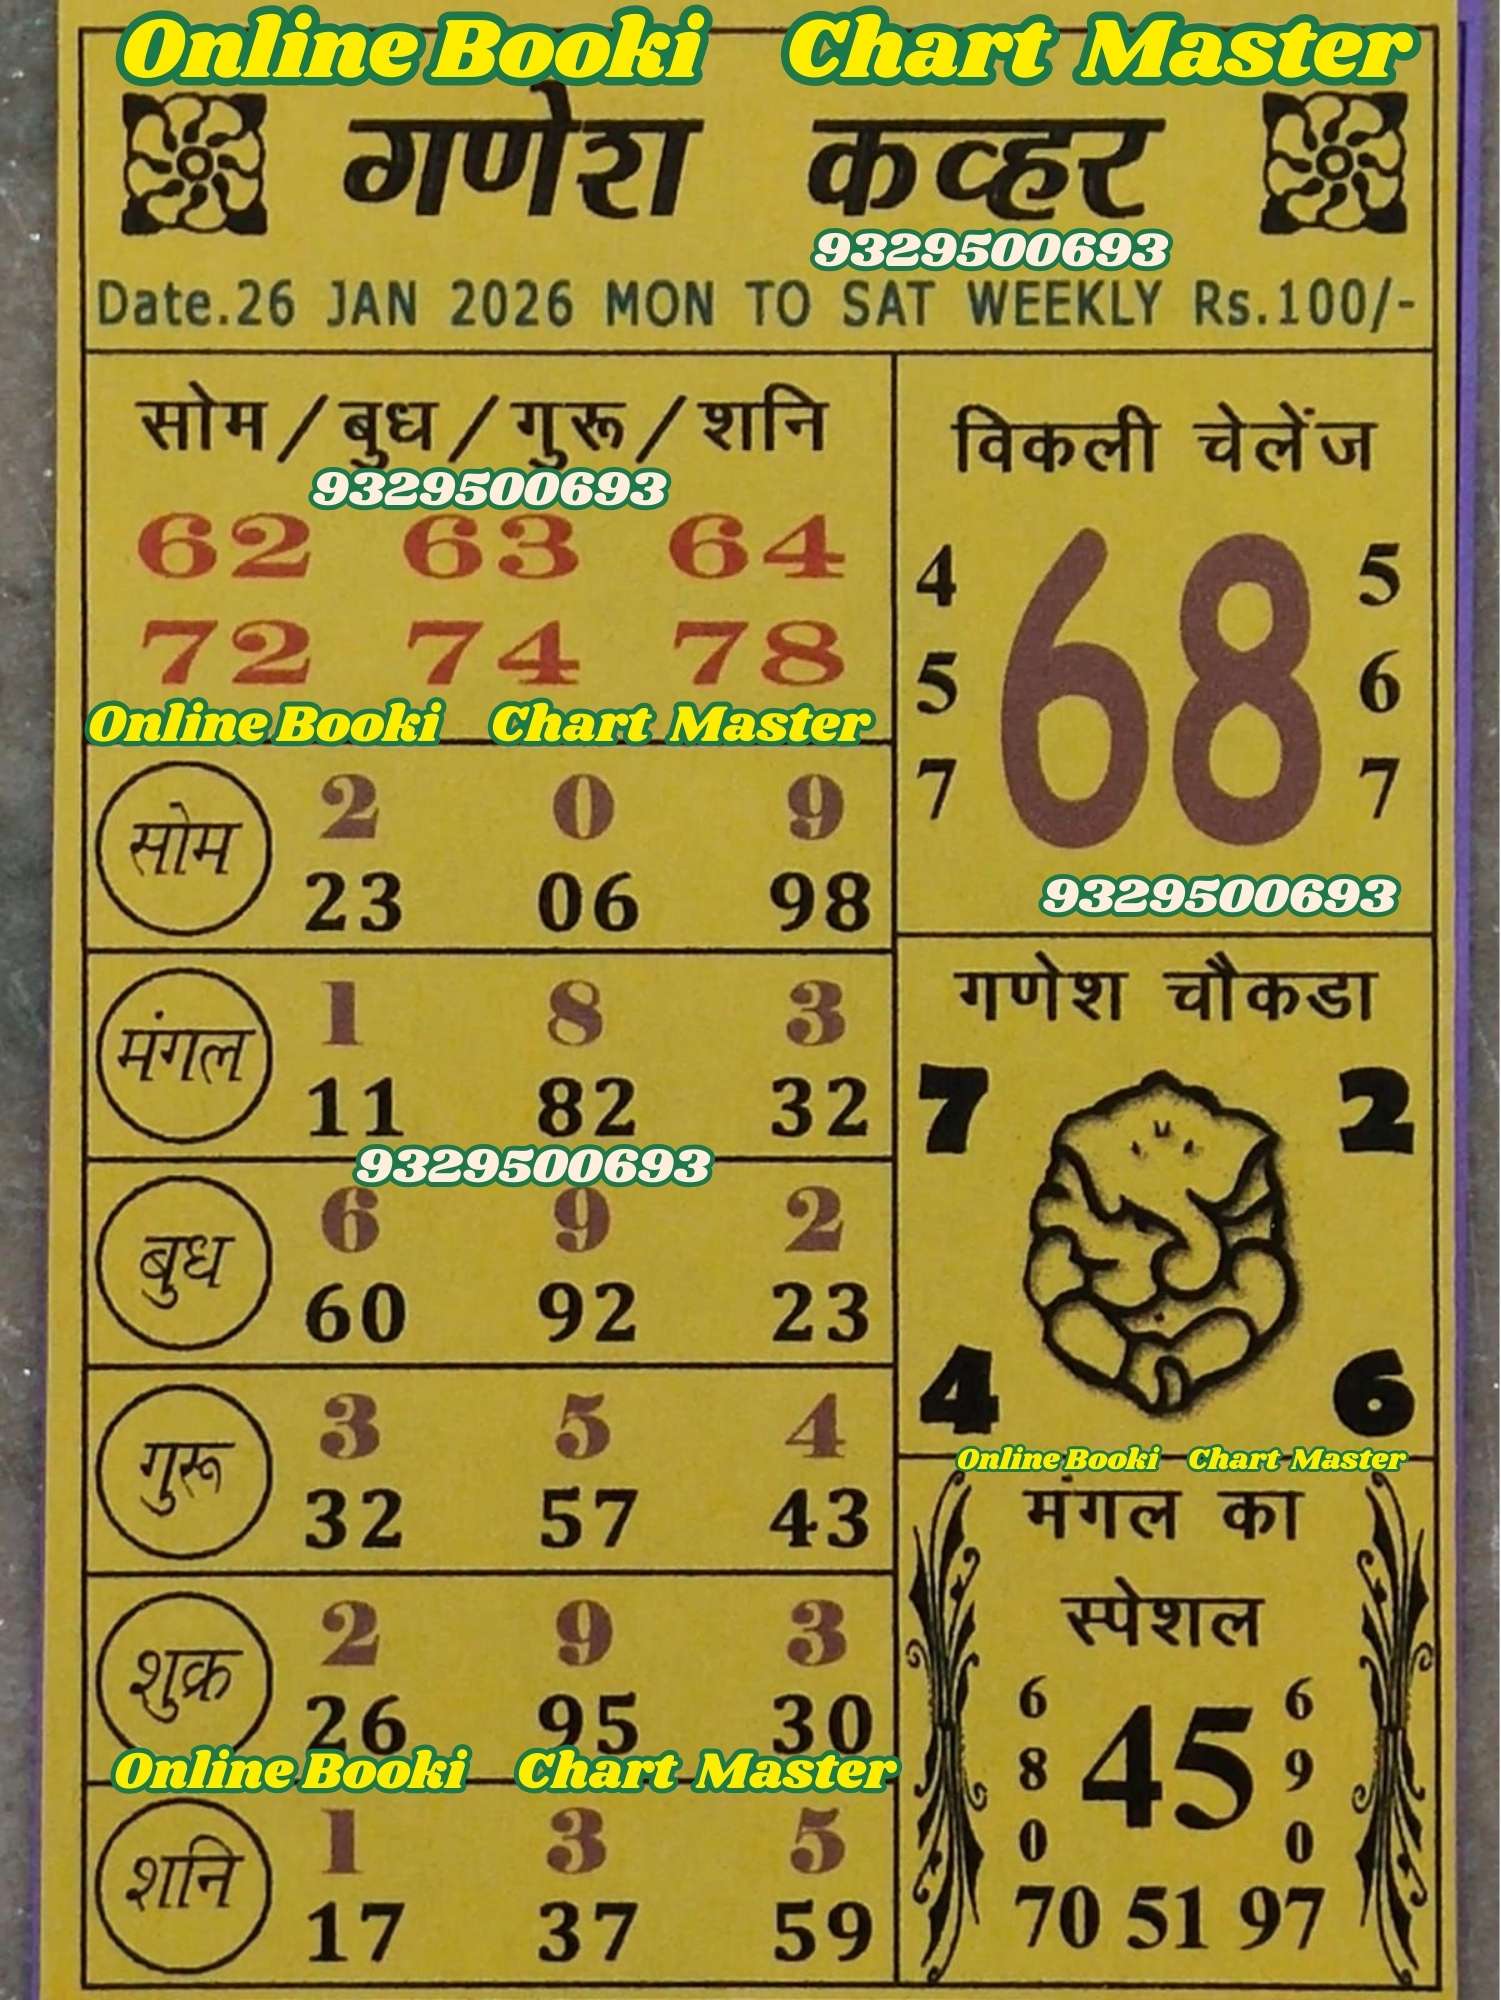 Online Booki Chart Master
गणेश कव्हर
9329500693
Date.26 JAN 2026 MON TO SAT WEEKLY Rs.100/-
सोम/बुध/गुरू/शनि
9329500693
62 63 64
72 74 78
Online Booki Chart Master
सोम
2 0 9
23 06 98
मंगल
1 8 3
11 82 32
9329500693
बुध
6 9 2
60 92 23
गुरू
3 5 4
32 57 43
शुक्र
2 9 3
26 95 30
Online Booki Chart Master
शनि
1 3 5
17 37 59
विकली चेलेंज
4 5
68
5 6
7 7
9329500693
गणेश चौकडा
7 2
4 6
Online Booki Chart Master
मंगल का
स्पेशल
6 6
8 45 9
0 0
70 51 97